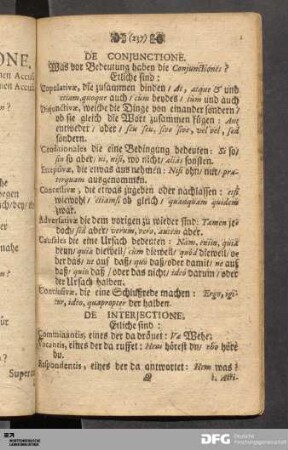 (237)
DE CONJUNCTIONE.
Was vor Bedeutung haben die Conjunctiones?
Etliche sind:
Copulativæ, die zusammen binden / Ac, atque & und
etiam, quoque auch / cùm beydes / tùm und auch
Disjunctivæ, welche die Dinge von einander sondern /
ob sie gleich die Wort zusammen fügen: Aut
entweder / oder / seu seu, sive sive, vel vel, sed
sondern.
Conditionales die eine Bedingung bedeuten: Si so /
sin so aber / ni, nisi, wo nicht / aliàs sonsten.
Exceptivæ, die etwas aus nehmen: Nisi ohn / nur / præ-
terquam ausgenommen.
Concessivæ, die etwas zugeben oder nachlassen: etsi
wiewohl / etiamsi ob gleich / quanquam quidem
zwar.
Adversativæ die dem vorigen zu wieder sind: Tamen je-
doch / sed aber / verum, vero, autem aber.
Causales die eine Ursach bedeuten: Nam, enim, quia
denn / quia dieweil / cùm dieweil / quòd dieweil / o-
der das / ut auf daß / quò daß / oder damit / ne auf
daß / quin daß / oder das nicht / ideò darum / oder
der Ursach halben.
Conclusivæ, die eine Schlußrede machen: Ergo, igi-
tur, ideo, quapropter der halben.
DE INTERJECTIONE.
Etliche sind:
Comminantis, eines der da dräuet: Væ Wehe.
Vocantis, eines der da ruffet: Heus hörest du / eho höre
du.
Respondentis, eines der da antwortet: Hem was?
ONE.
nahe
Super
DFG
Deutsche
Forschungsgemeinschaft